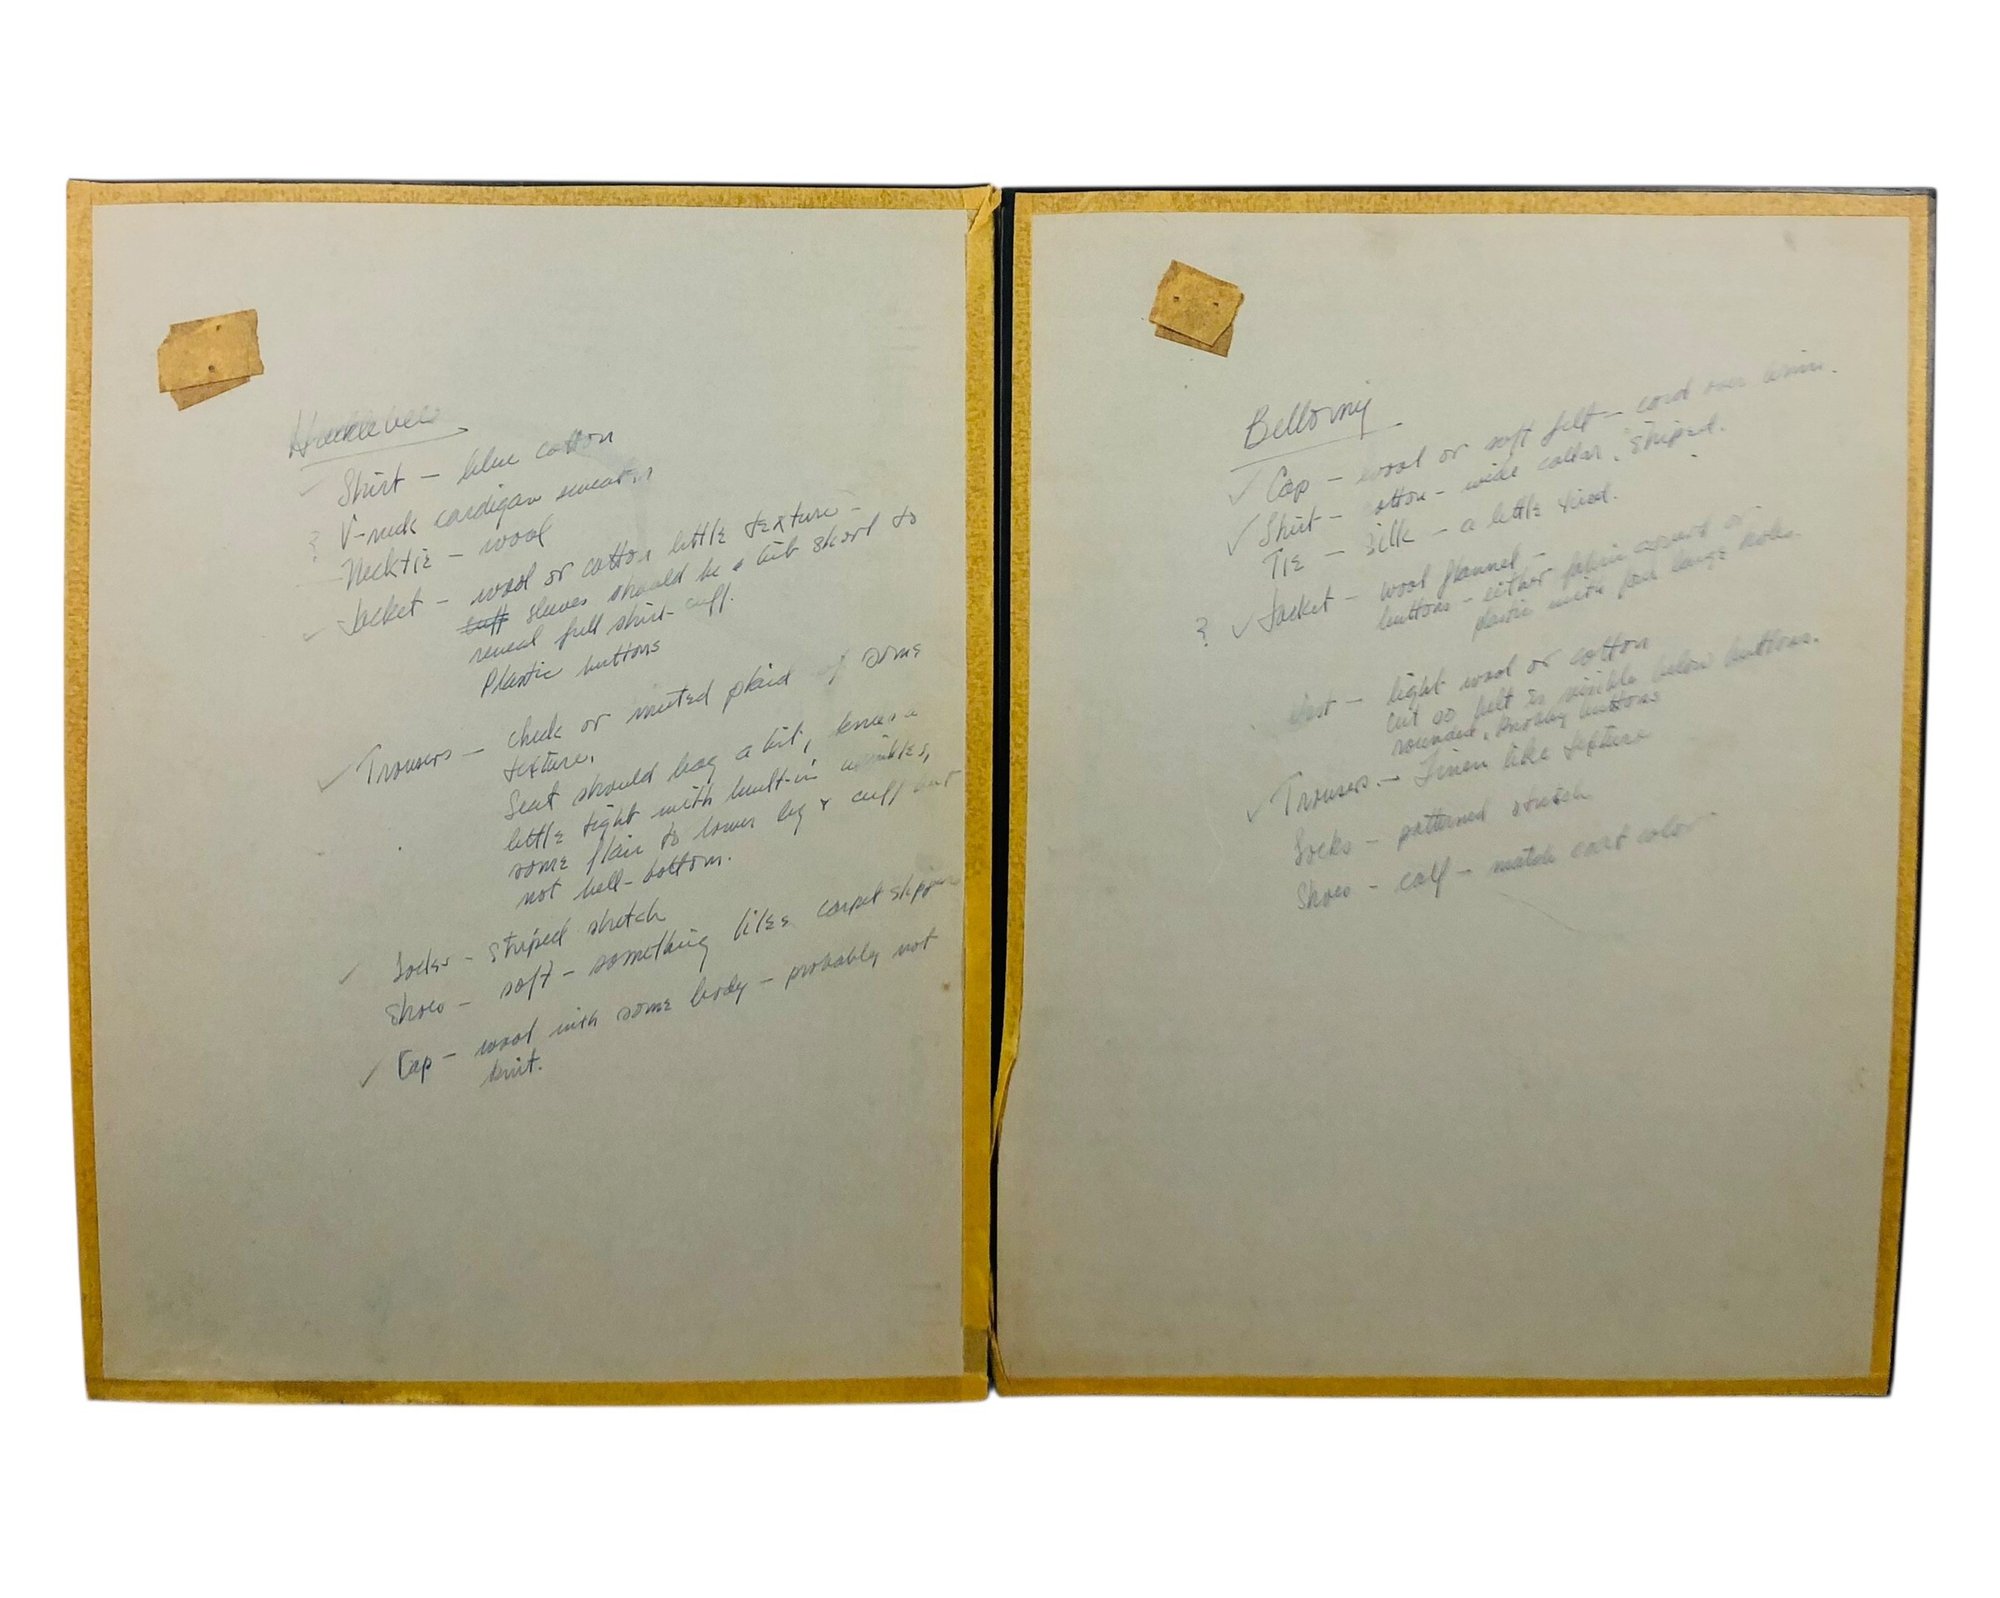 Hucklebee
✓ Shirt — blue cotton
? V-neck cardigan sweater
Necktie — wool
✓ Jacket — wool or cotton little texture —
cuff sleeves should be a bit short to
reveal full shirt-cuff.
Plastic buttons
✓ Trousers — check or muted plaid of some
texture.
Seat should bag a bit, knees a
little tight with built-in wrinkles,
some flair to lower leg & cuff but
not bell-bottom.
✓ Socks — striped stretch
Shoes — soft — something like carpet slippers
✓ Cap — wool with some body — probably not
knit.
Bellomy
✓ Cap — wool or soft felt — cord over brim.
✓ Shirt — cotton — wide collar, striped.
Tie — silk — a little tired.
? ✓ Jacket — wool flannel —
buttons — either fabric covered or
plastic with four large holes.
Vest — light wool or cotton
cut so belt is visible below buttons.
rounded, knobby buttons
✓ Trousers. — Linen like texture
Socks — patterned stretch
Shoes — calf — match coat color